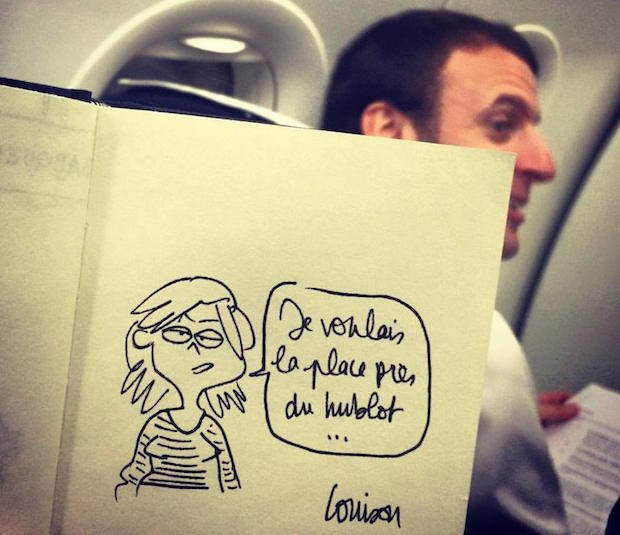 Je voulais
la place près
du hublot
...
Louison